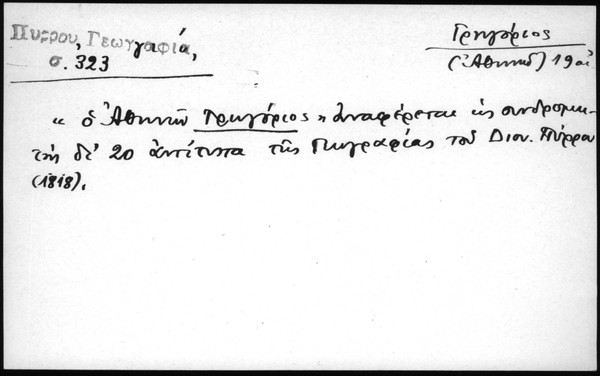 Πύρρου, Γεωγραφία,
σ. 323
Γρηγόριος
(Ἀθηνῶν) 19ος αἰ
« ὁ Ἀθηνῶν Γρηγόριος » ἀναφέρεται ὡς συνδρομη-
τὴς δι' 20 ἀντίτυπα τῆς Γεωγραφίας τοῦ Διον. Πύρρου
(1818).